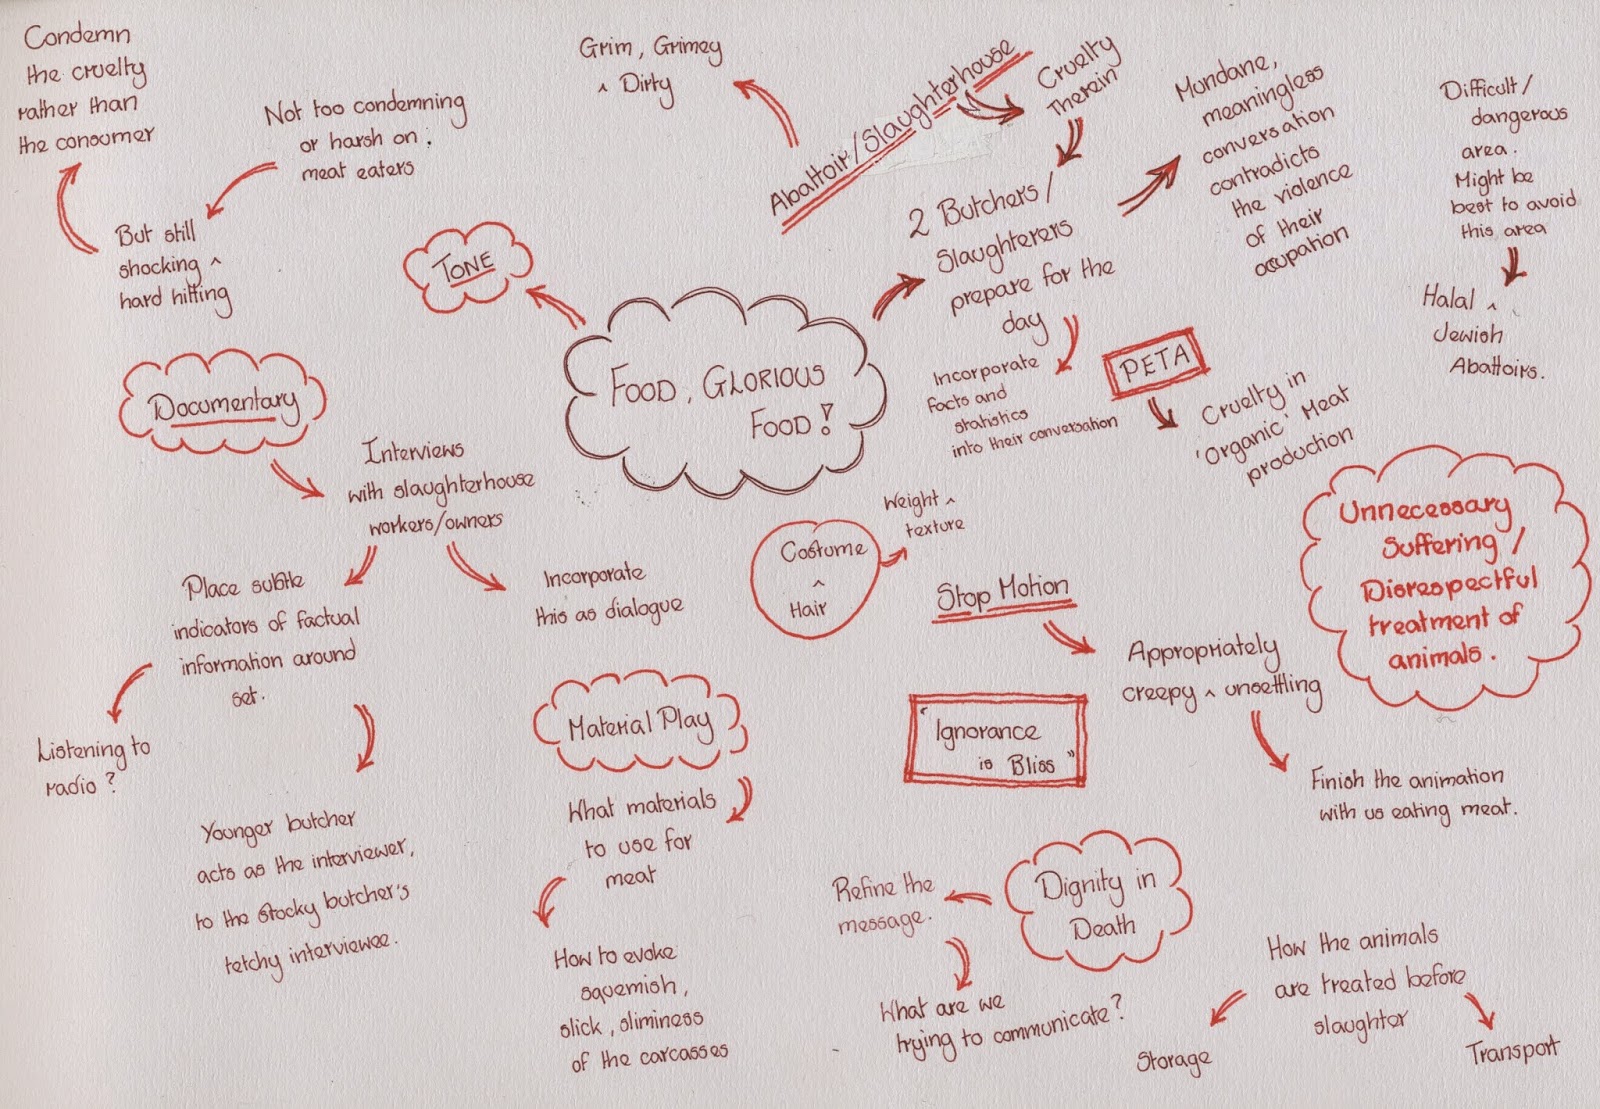 Condemn
the cruelty
rather than
the consumer
Not too condemning
or harsh on
meat eaters
But still
shocking ^
hard hitting
Grim, Grimey
^ Dirty
Abattoir/Slaughterhouse
Cruelty
Therein
2 Butchers/
Slaughterers
prepare for the
day
Mundane,
meaningless
conversation
contradicts
the violence
of their
occupation
Difficult/
dangerous
area.
Might be
best to avoid
this area
Halal ^
Jewish
Abattoirs.
TONE
FOOD, GLORIOUS
FOOD!
Incorporate
facts and
statistics
into their conversation
PETA
Cruelty in
'Organic' Meat
production
Documentary
Interviews
with slaughterhouse
workers/owners
Place subtle
indicators of factual
information around
set.
Incorporate
this as dialogue
Listening to
radio?
Younger butcher
acts as the interviewer,
to the stocky butcher's
tetchy interviewee.
Costume
^
Hair
Weight ^
texture
Stop Motion
Appropriately
creepy ^ unsettling
Finish the animation
with us eating meat.
Unnecessary
Suffering /
Disrespectful
treatment of
animals.
Material Play
What materials
to use for
meat
How to evoke
squemish,
slick, sliminess
of the carcasses
"Ignorance
is Bliss"
Dignity in
Death
Refine the
message.
What are we
trying to communicate?
How the animals
are treated before
slaughter
Storage
Transport